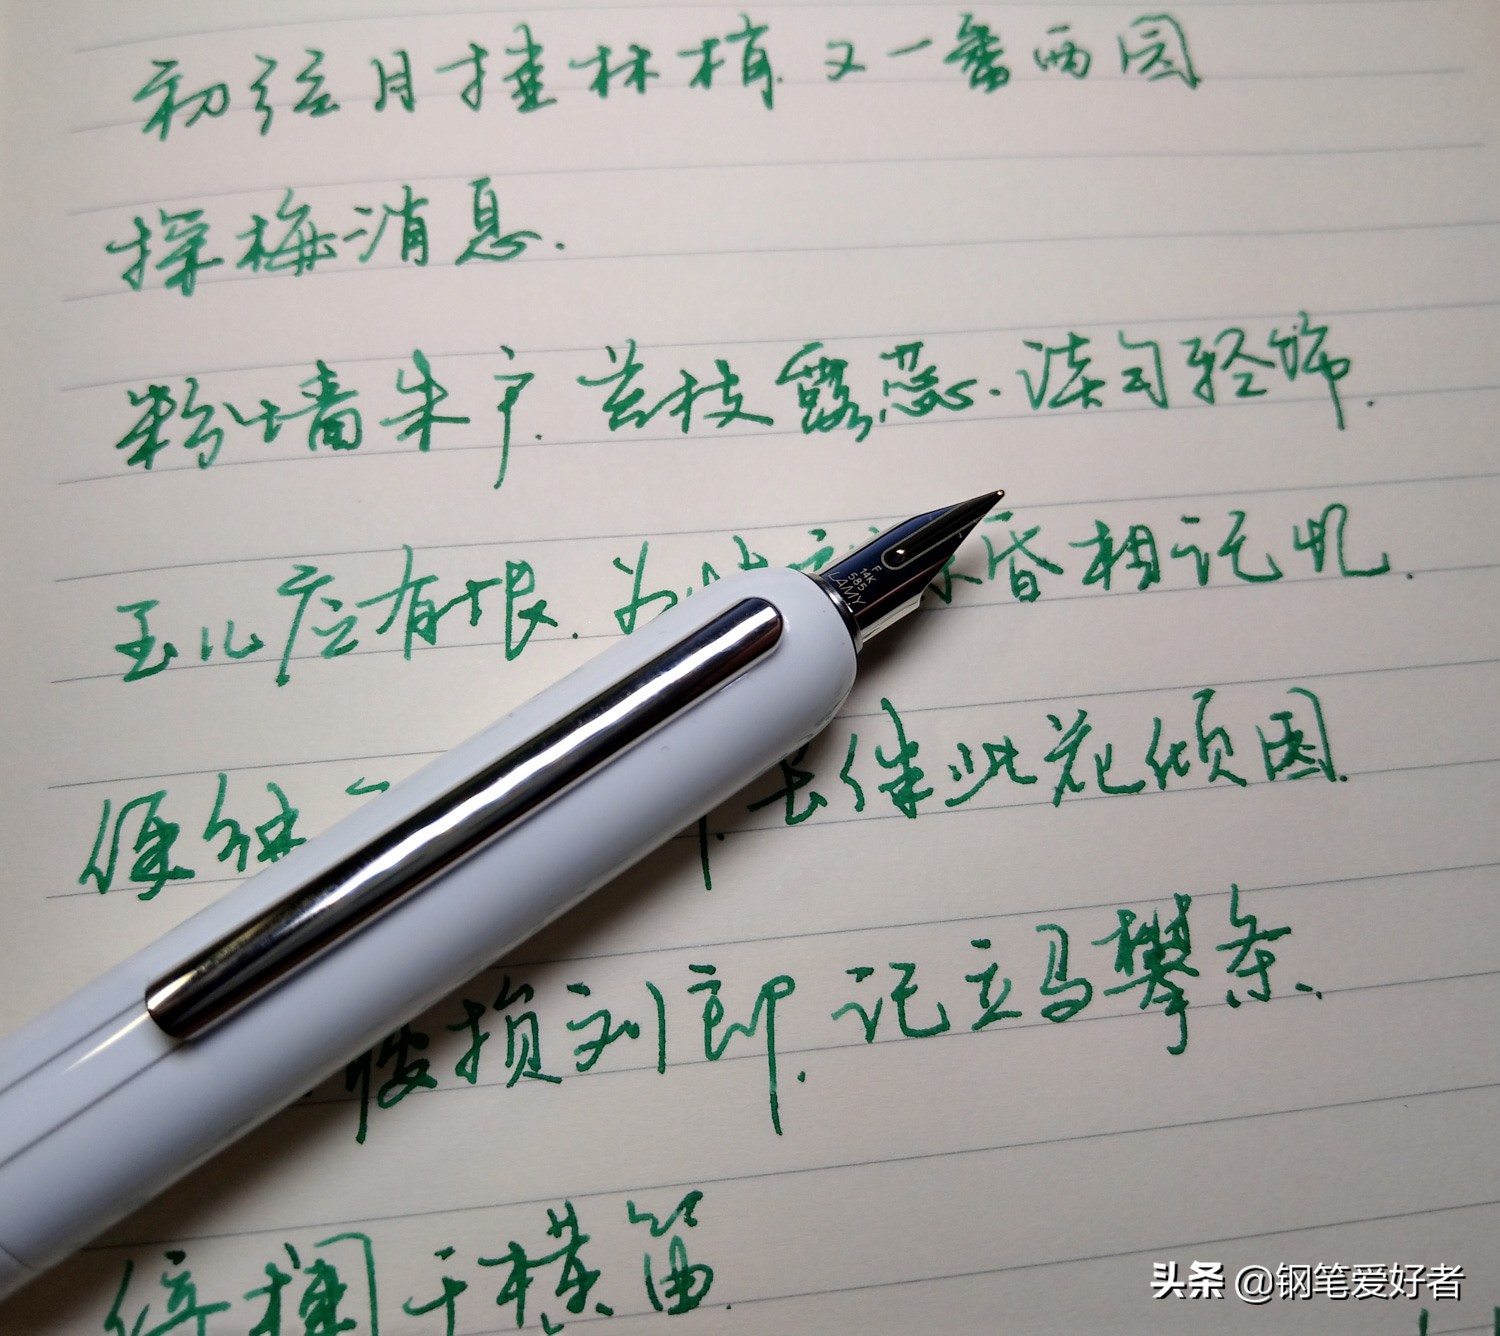 初弦月挂林梢.又一番西园
探梅消息.
粉墙朱户.苔枝露蕊.淡匀轻饰.
玉儿应有恨.为 昏相记忆.
便 长伴此花倾国.
瘦损刘郎.记立马攀条.
倚栏干横笛.
F
14K
585
LAMY
头条 @钢笔爱好者